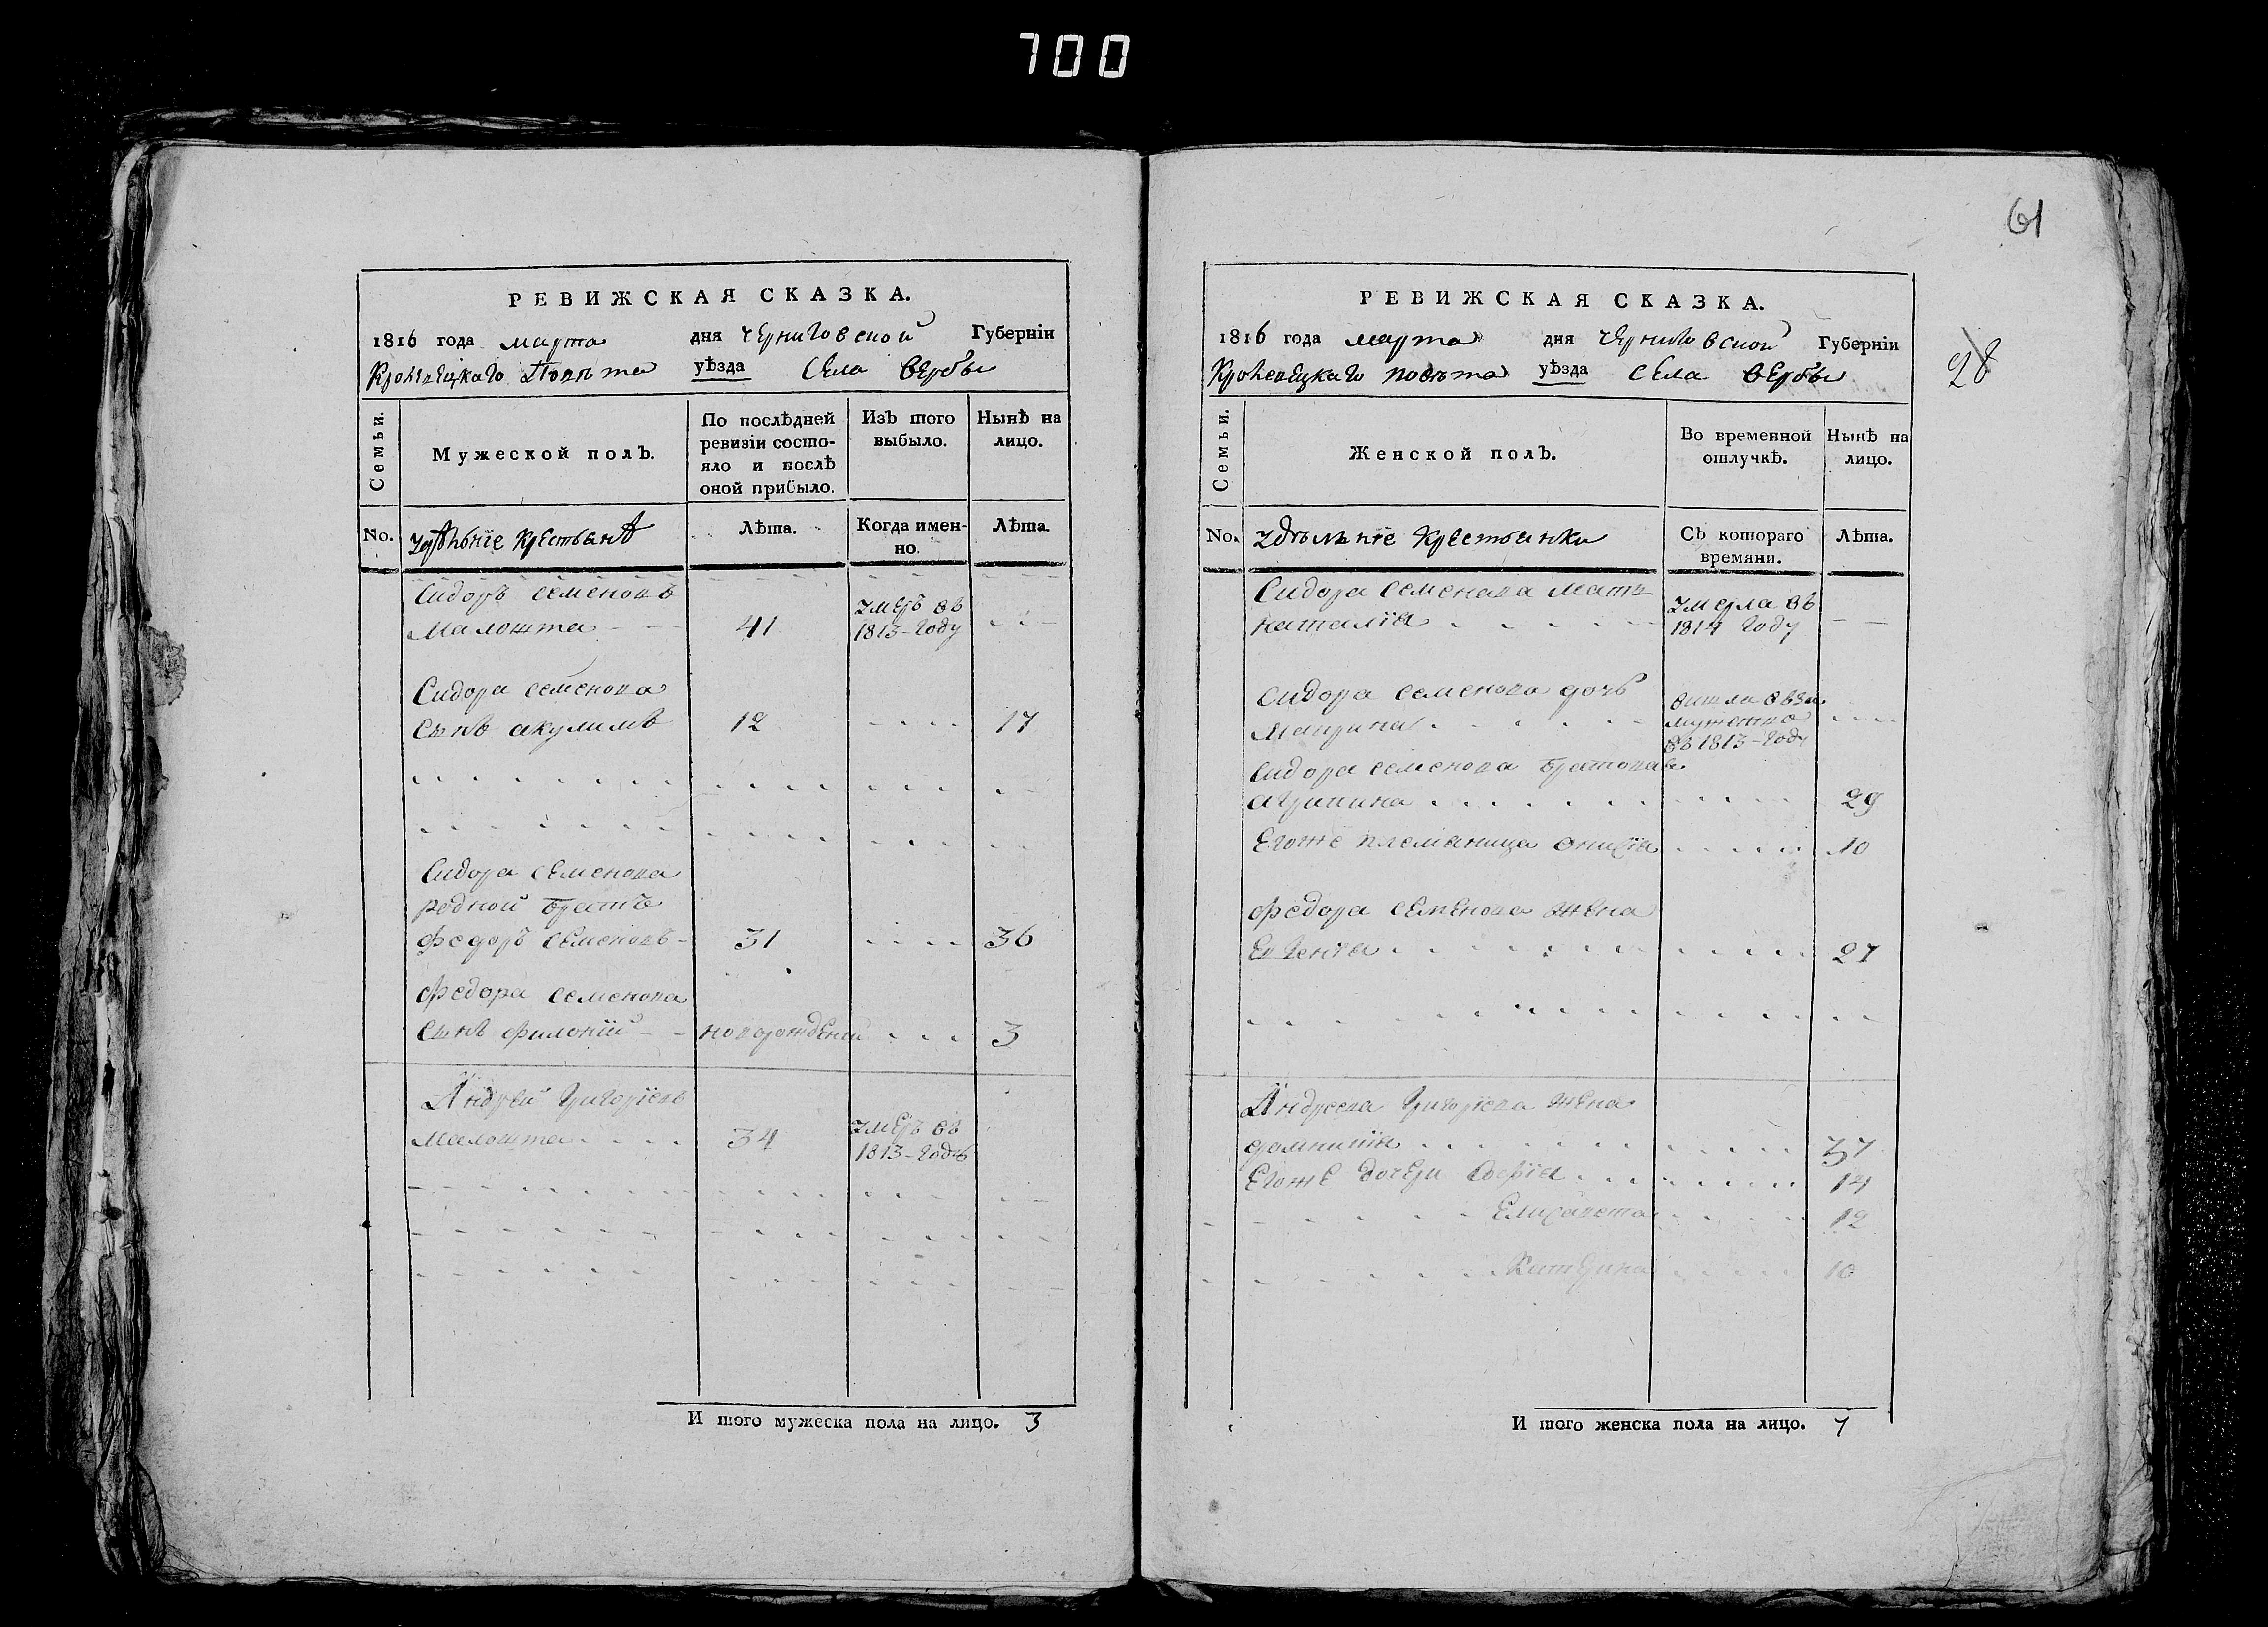 700
61
28
РЕВИЖСКАЯ СКАЗКА.
1816 года марта дня черниговской Губерніи
Кролевецкаго Повѣта уѣзда Села вербы
Семьи.
Мужеской полъ.
По послѣдней ревизіи состояло и послѣ оной прибыло.
Изъ того выбыло.
Нынѣ на лицо.
No.
Крестьянѣ
Лѣта.
Когда именно.
Лѣта.
Сидоръ семеновъ
Малюшта 41 умеръ въ 1813-году
Сидора семенова
сынъ акулимъ 12 17
Сидора семенова
родной братъ
федоръ семеновъ 31 36
федора семенова
сынъ филоній новорожденій 3
Андрей григоріевъ
малюшта 34 умеръ въ 1813-годѣ
И того мужеска пола на лицо. 3
РЕВИЖСКАЯ СКАЗКА.
1816 года марта дня черниговской Губерніи
Кролевецкаго повѣта уѣзда села вербы
Семьи.
Женской полъ.
Во временной отлучкѣ.
Нынѣ на лицо.
No.
крестьянки
Съ котораго времяни.
Лѣта.
Сидора семенова мать
наталія умерла въ 1814 году
Сидора семенова дочь
марина вишла въ замужство въ 1813-году
Сидора семенова братовая
агрипина 29
Егоже племяница 10
федора семенова жена
Евгенія 27
Андреева григоріева жена
домникія 37
Егоже дочери софія 14
Елисавета 12
Катерина 10
И того женска пола на лицо. 7